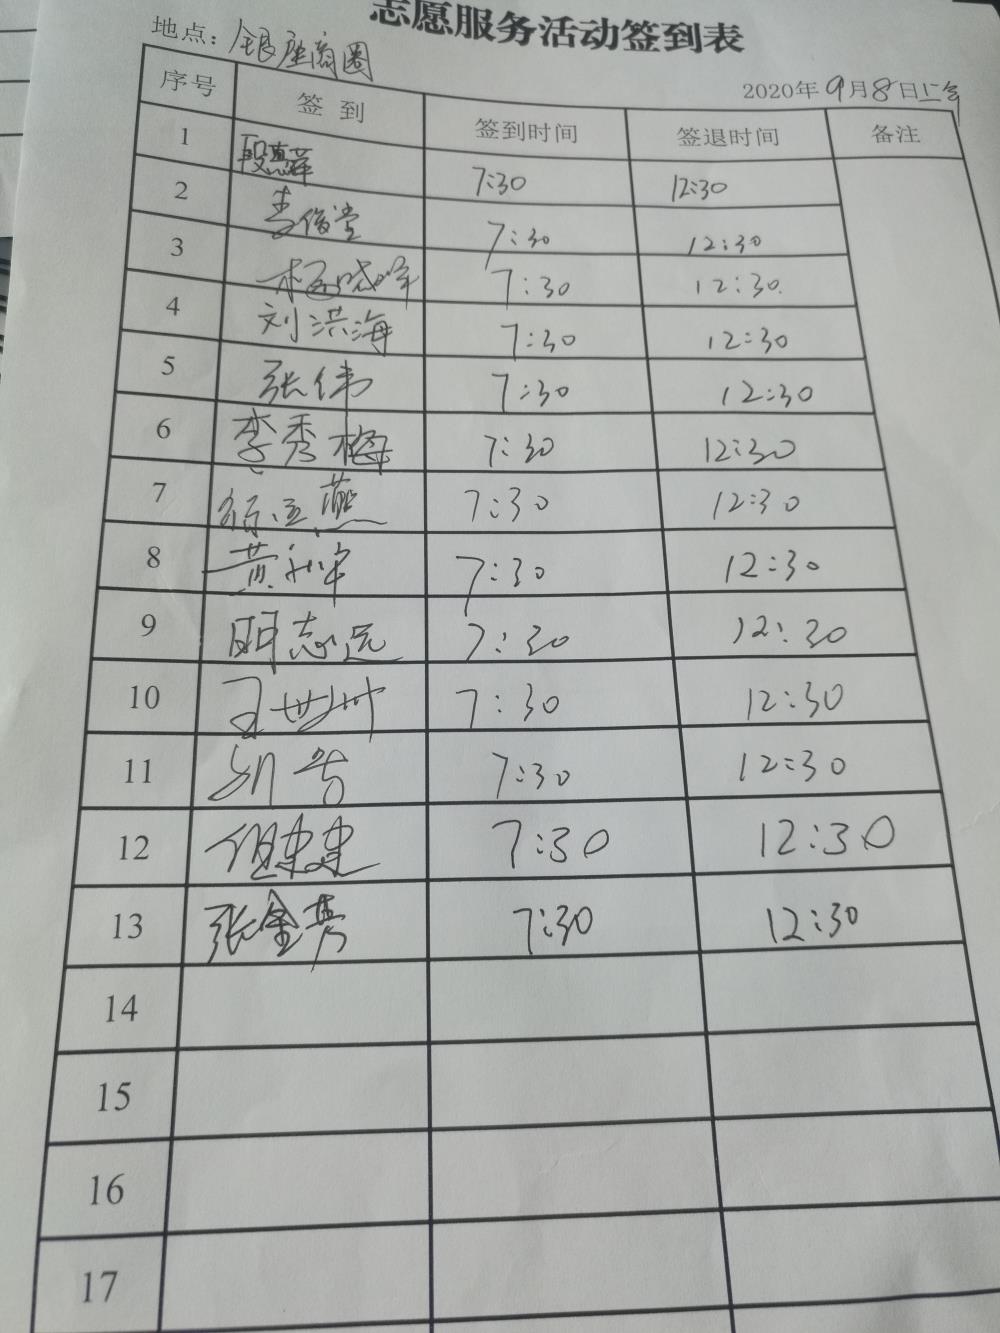 志愿服务活动签到表
地点：银座商圈
2020年9月8日上午
序号 签到 签到时间 签退时间 备注
1 段惠萍 7:30 12:30
2 李俊堂 7:30 12:30
3 杨晓峰 7:30 12:30
4 刘洪海 7:30 12:30
5 张伟 7:30 12:30
6 李秀梅 7:30 12:30
7 燕 7:30 12:30
8 黄 7:30 12:30
9 明志远 7:30 12:30
10 王世州 7:30 12:30
11 7:30 12:30
12 建 7:30 12:30
13 张金芳 7:30 12:30
14
15
16
17